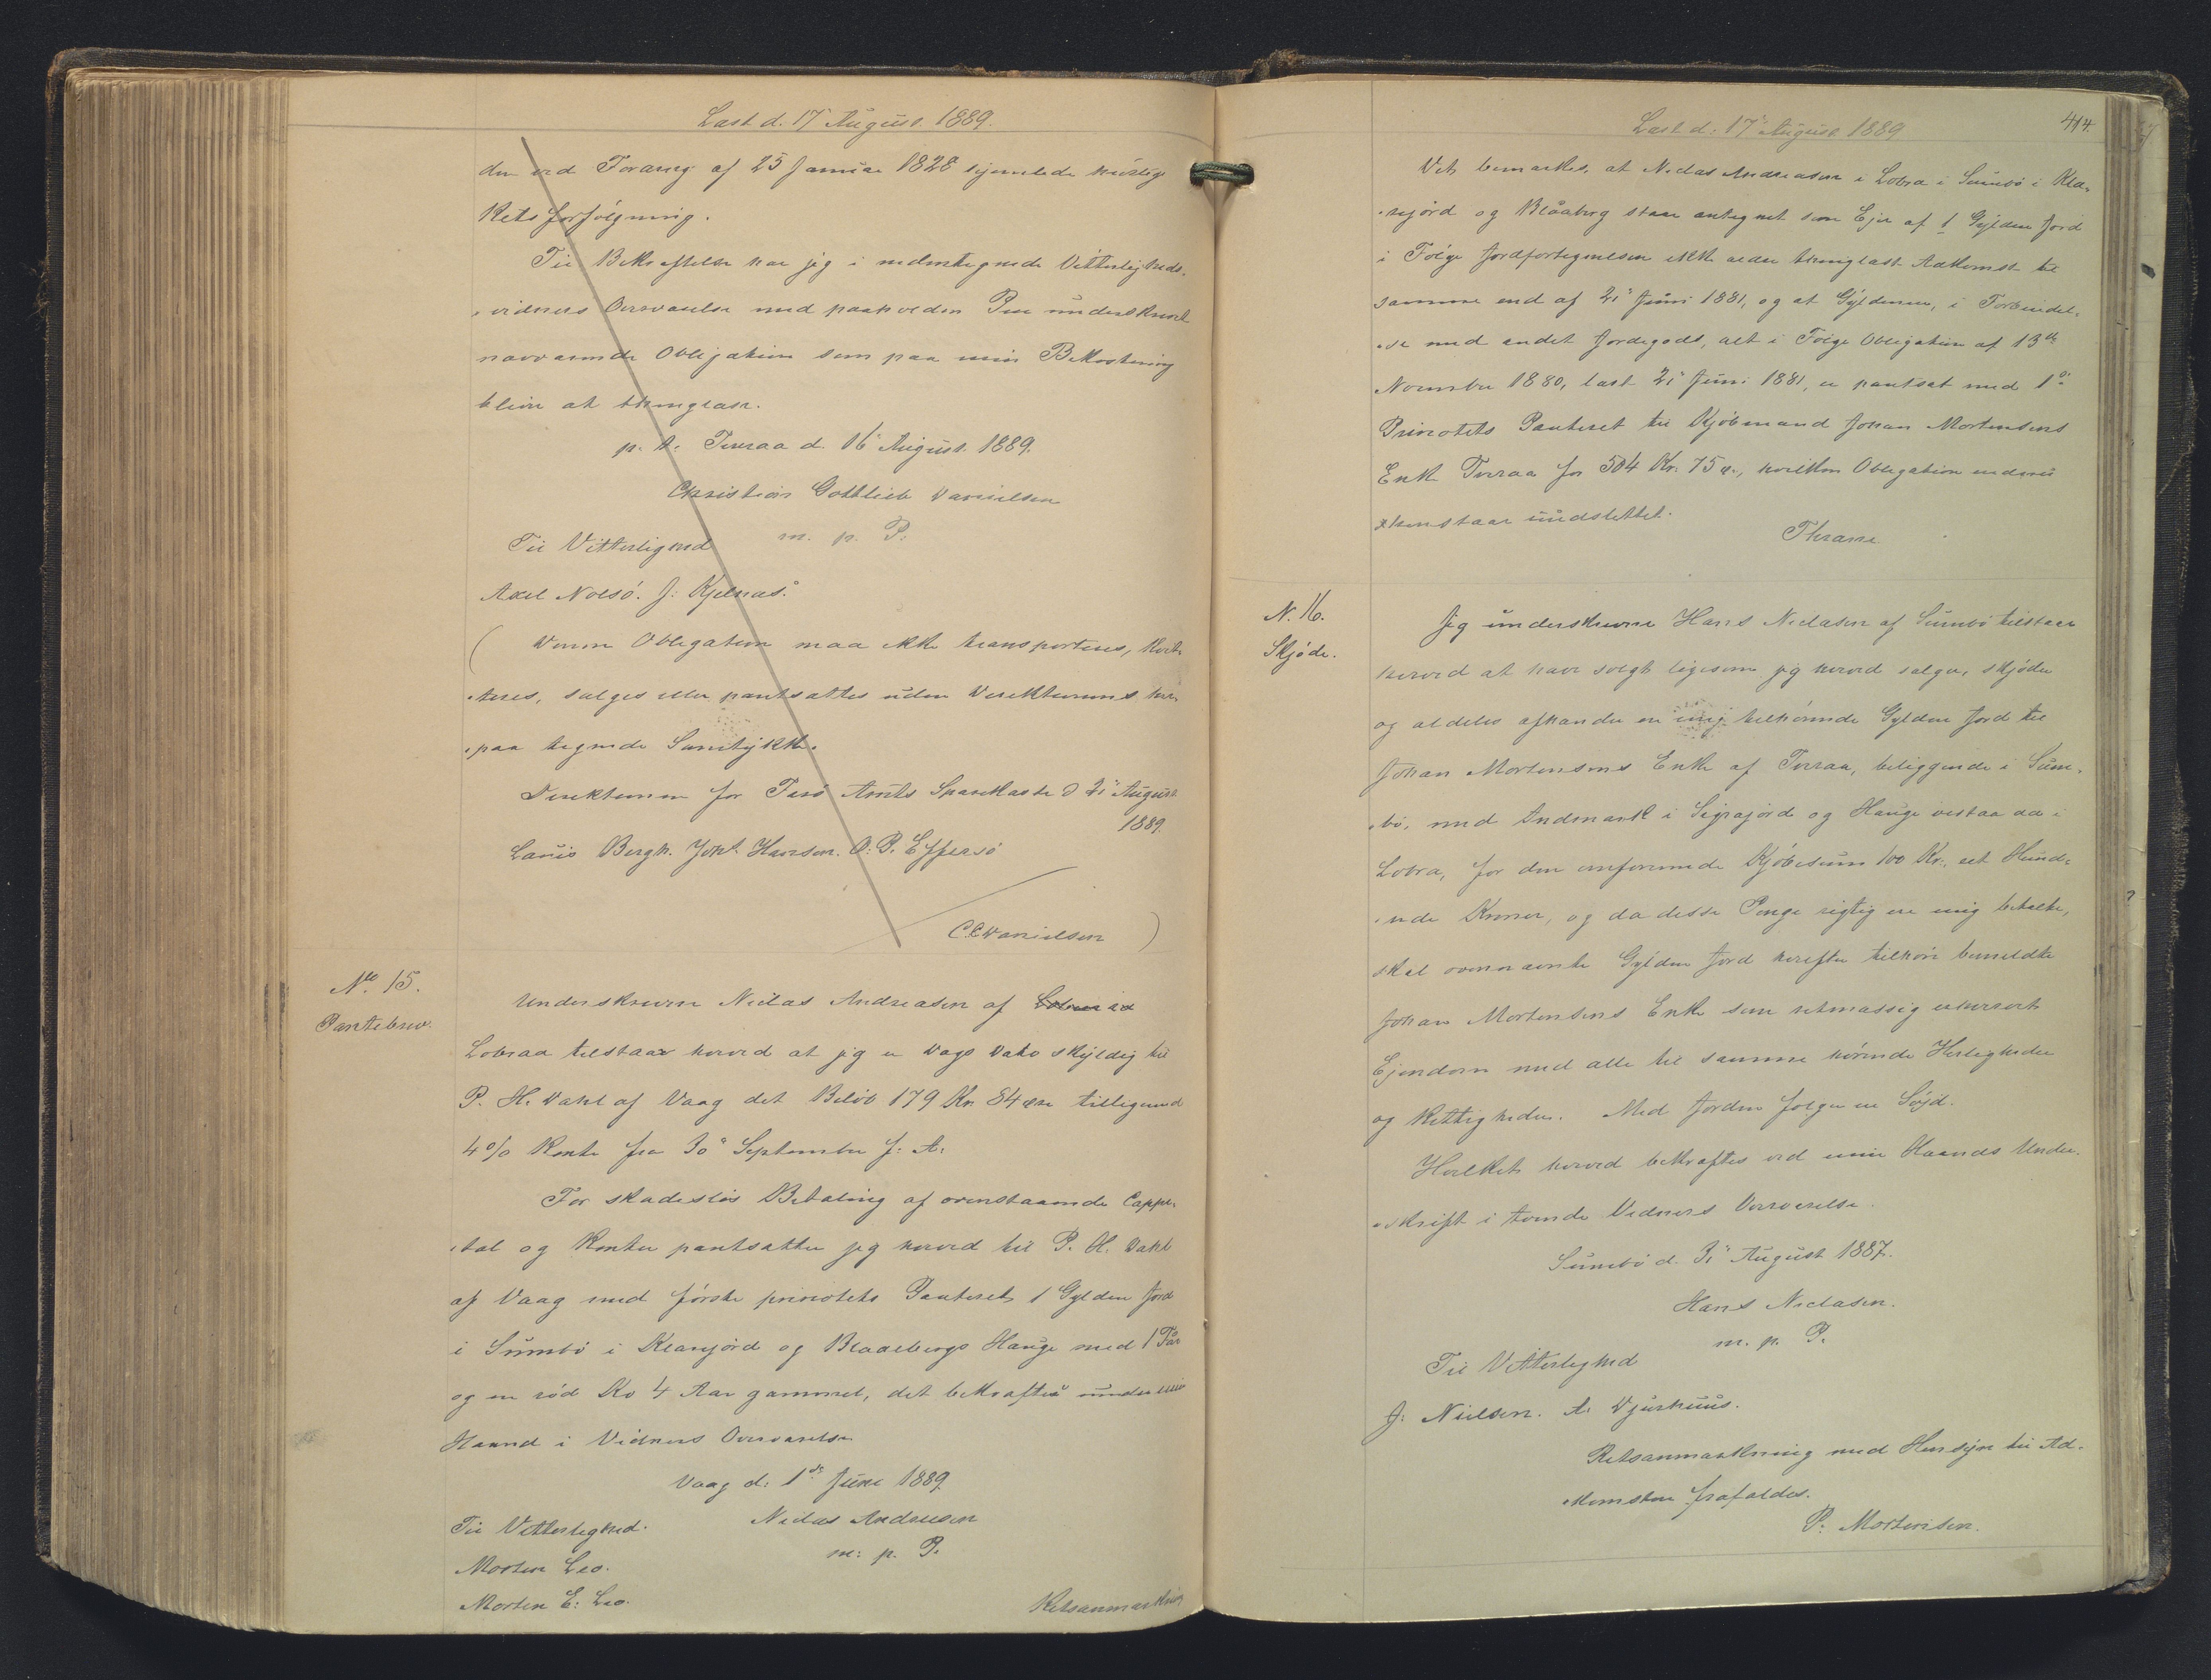 Læst d. 17 August. 1889.
den ved Forordg af 25 Januar 1828 hjemlede hurtige
Retsforfølgning.
Til Bekræftelse har jeg i medundtegnede Vitterligheds-
vidners Overværelse med paaholden Pen underskrevet
nærværende Obligation som paa min Bekostning
bliver at thinglæse.
p. t. Tveraa d. 16 August. 1889.
Christian Gottlieb Danielsen
m. p. P.
Til Vitterlighed
Axel Nolsö. J. Kjelnæs.
( Denne Obligation maa ikke transporteres, kvit-
teres, sælges eller pantsættes uden Direktionens her-
paa tegnede Samtykke.
Direktionen for Færö Amts Sparekasse d 21 August
1889.
Louis Bergh. Joh. Hansen. O. P. Effersö
C.C Danielsen )
No. 15.
Pantebrev.
Underskrevne Niclas Andreasen af
Lobraa tilstaar herved at jeg er Dags Dato skyldig til
P. H. Dahl af Vaag det Beløb 179 Kr. 84 øre tilligemed
4% Rente fra 30" September f. A.
For skadesløs Betaling af ovenstaaende Cappi-
tal og Renter pantsætter jeg herved til P. H. Dahl
af Vaag med første prioritets Panteret 1 Gylden Jord
i Sumbö i Klærjord og Blaabergs Hauge med 1 Får
og en rød Ko 4 Aar gammel, det bekræftes under min
Haand i Vidners Overværelse
Vaag d: 1ste Juni 1889.
Niclas Andreasen
m: p. P.
Til Vitterlighed.
Morten Leo.
Morten E: Leo.
Retsanmærkning
Læst d: 17" August 1889
414.
Det bemærkes, at Niclas Andreasen i Lobra i Sumbö i Kla-
rejord og Blåaberg staar antegnet som Ejer af 1 Gylden Jord
i Følge Jordfortegnelsen ikke ældre thinglæst Adkomst til
samme end af 21" Juni 1881, og at Gyldenen, i Forbindel-
se med andet Jordegods, alt i Følge Obligation af 13de
November 1880, læst 21" Juni 1881, er pantsat med 1ste
Prioritets Panteret til Kjøbmand Johan Mortensens
Enke Tveraa for 504 Kr. 75 ø., hvilken Obligation endnu
henstaar uudslettet.
Thrane
N. 16.
Skjøde.
Jeg underskrevne Hans Niclasen af Sumbö tilstaar
herved at have solgt ligesom jeg herved sælger, skjøder
og aldeles afhænder en mig tilhørende Gylden Jord til
Johan Mortensens Enke af Tveraa, beliggende i Sum-
bö, med Indmark i Sigrajord og Hauge vestaa aa i
Lobra, for den omforenede Kjøbesum 100 Kr., et Hund-
rede Kroner, og da disse Penge rigtig ere mig betalte,
skal ovennævnte Gylden Jord herefter tilhøre bemeldte
Johan Mortensens Enke som retmæssig erhvervet
Ejendom med alle til samme hørende Herligheder
og Rettigheder. Med Jorden følger en Söjd.
Hvilket herved bekræftes ved min Haands Under-
skrift i tvende Vidners Overværelse.
Sumbö d. 31" August 1887.
Hans Niclasen.
m. p. P.
Til Vitterlighed
J: Nielsen. A. Djurhuus.
Retsanmærkning med Hensyn til Ad-
komsten frafaldes.
P. Mortensen.